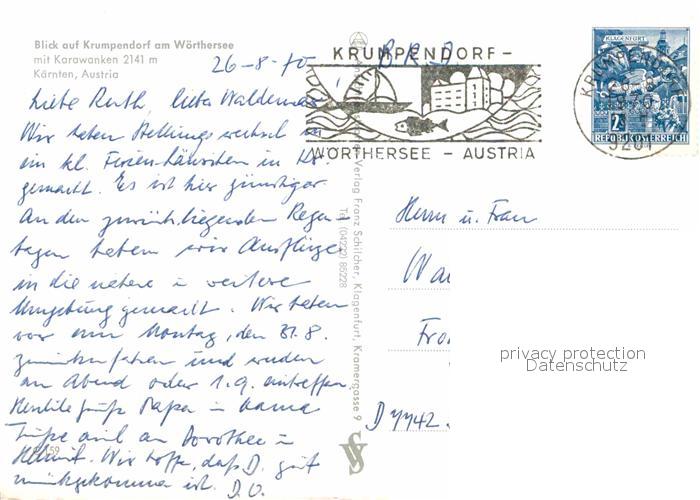 Blick auf Krumpendorf am Wörthersee
mit Karawanken 2141 m
Kärnten, Austria
26-8-70
BRD
KRUMPENDORF -
WÖRTHERSEE - AUSTRIA
KLAGENFURT
2s
REPUBLIK ÖSTERREICH
Liebe Ruth, lieber Waldemar!
Wir haben Stellungswechsel in
ein kl. Ferienhäuschen in Kr.
gemacht. Es ist hier günstiger.
An den zurückliegenden Regen-
tagen haben wir Ausflüge
in die nähere u weitere
Umgebung gemacht. Wir haben
vor am Montag, den 31.8.
zurückzufahren und werden
am Abend oder 1.9. eintreffen.
Herzliche Grüße Papa u Mama
Grüße auch an Dorothee u
Helmut. Wir hoffe, daß D. gut
zurückgekommen ist. D.O.
Verlag Franz Schilcher, Klagenfurt, Kramergasse 9
Tel. (04222) 86228
Herrn u. Frau
Wa
Fro
D 7742
privacy protection
Datenschutz